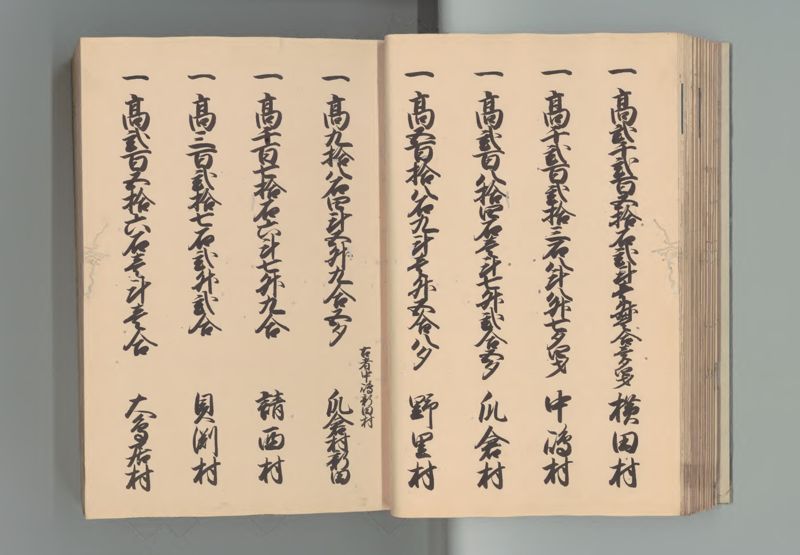 一 高弐千弐百五拾石弐斗 横田村
一 高千弐百弐拾三石八斗八升七夕 中嶋村
一 高弐百八拾四石壱斗七升弐合五夕 瓜倉村
一 高五百拾八石九斗壱升五合八夕 野里村
古者中嶋新田村
一 高九拾八石四斗五升九合五夕 瓜倉村新田
一 高千百七拾石六斗七升九合 請西村
一 高三百弐拾七石弐升弐合 貝渕村
一 高弐百五拾六石壱斗壱合 大鳥居村